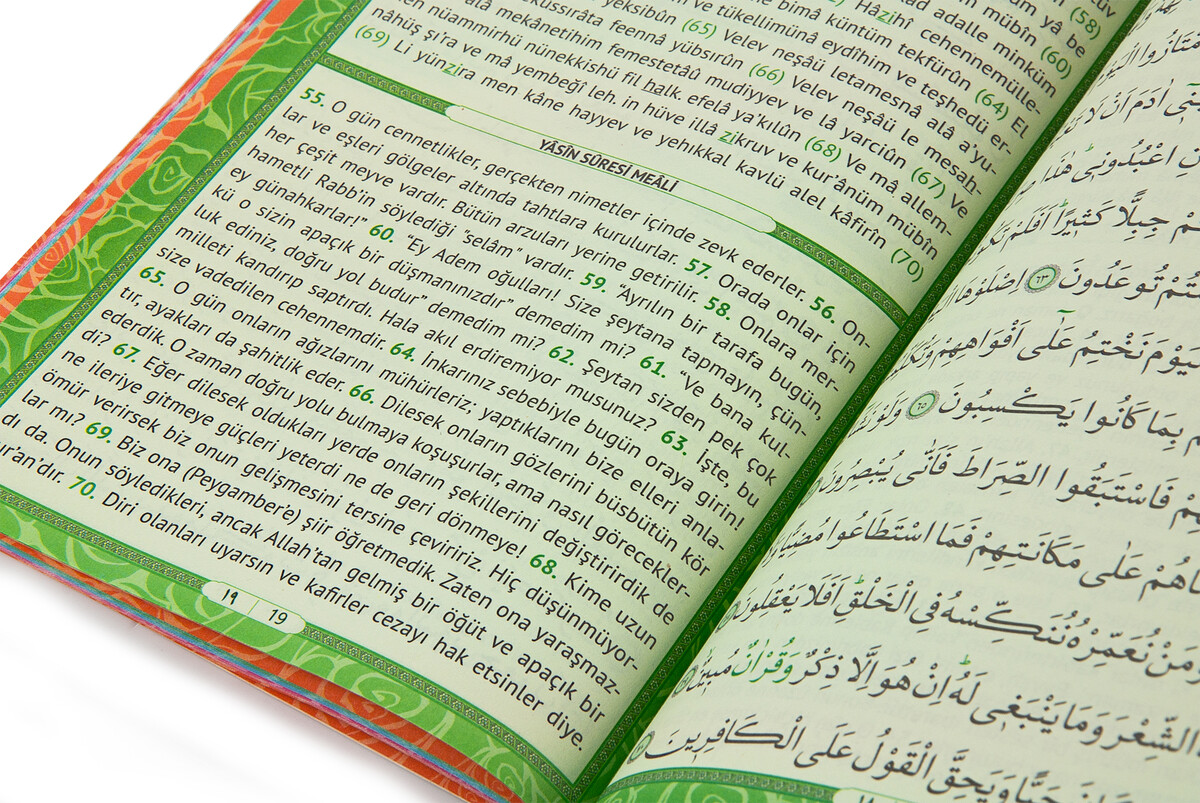 yâ be
mübîn (60)
adalle minküm
Hâzihî cehennemülle-
bimâ küntüm tekfürûn (64) El
ve tükellimünâ eydîhim ve teşhedü er-
yeksibûn (65) Velev neşâü letamesnâ alâ a'yu-
feennâ yübsırûn (66) Velev neşâü le mesah-
alâ mekânetihim femestetâû mudiyyev ve lâ yarciûn (67) Ve
nüammirhü nünekkishü fil halk. efelâ ya'kılûn (68) Ve mâ allem-
nâhüş şi'ra ve mâ yembeğî leh. in hüve illâ zikruv ve kur'ânüm mübîn
(69) Li yünzira men kâne hayyev ve yehıkkal kavlü alel kâfirîn (70)
YÂSÎN SÛRESİ MEÂLİ
55. O gün cennetlikler, gerçekten nimetler içinde zevk ederler. 56. On-
lar ve eşleri gölgeler altında tahtlara kurulurlar. 57. Orada onlar için
her çeşit meyve vardır. Bütün arzuları yerine getirilir. 58. Onlara mer-
hametli Rabb'in söylediği "selâm" vardır. 59. "Ayrılın bir tarafa bugün,
ey günahkarlar!" 60. "Ey Adem oğulları! Size şeytana tapmayın, çün-
kü o sizin apaçık bir düşmanınızdır" demedim mi? 61. "Ve bana kul-
luk ediniz, doğru yol budur" demedim mi? 62. Şeytan sizden pek çok
milleti kandırıp saptırdı. Hala akıl erdiremiyor musunuz? 63. İşte, bu
size vadedilen cehennemdir. 64. İnkarınız sebebiyle bugün oraya girin!
65. O gün onların ağızlarını mühürleriz; yaptıklarını bize elleri anla-
tır, ayakları da şahitlik eder. 66. Dilesek onların gözlerini büsbütün kör
ederdik. O zaman doğru yolu bulmaya koşuşurlar, ama nasıl görecekler-
di? 67. Eğer dilesek oldukları yerde onların şekillerini değiştirirdik de
ne ileriye gitmeye güçleri yeterdi ne de geri dönmeye! 68. Kime uzun
ömür verirsek biz onun gelişmesini tersine çeviririz. Hiç düşünmüyor-
lar mı? 69. Biz ona (Peygamber'e) şiir öğretmedik. Zaten ona yaraşmaz-
dı da. Onun söyledikleri, ancak Allah'tan gelmiş bir öğüt ve apaçık bir
ur'an'dır. 70. Diri olanları uyarsın ve kafirler cezayı hak etsinler diye.
١٩ 19
اٰدَمَ اَنْ لَا
اعْبُدُونٖى هٰذَا
جِبِلًّا كَثٖيرًا اَفَلَمْ
تُوعَدُونَ ٦٣ اِصْلَوْهَا
نَخْتِمُ عَلٰٓى اَفْوَاهِهِمْ
بِمَا كَانُوا يَكْسِبُونَ ٦٥ وَلَوْ
فَاسْتَبَقُوا الصِّرَاطَ فَاَنّٰى يُبْصِرُونَ
عَلٰى مَكَانَتِهِمْ فَمَا اسْتَطَاعُوا
وَمَنْ نُعَمِّرْهُ نُنَكِّسْهُ فِى الْخَلْقِ اَفَلَا يَعْقِلُونَ
الشِّعْرَ وَمَا يَنْبَغٖى لَهُ اِنْ هُوَ اِلَّا ذِكْرٌ وَقُرْاٰنٌ مُبٖينٌ
حَيًّا وَيَحِقَّ الْقَوْلُ عَلَى الْكَافِرٖينَ